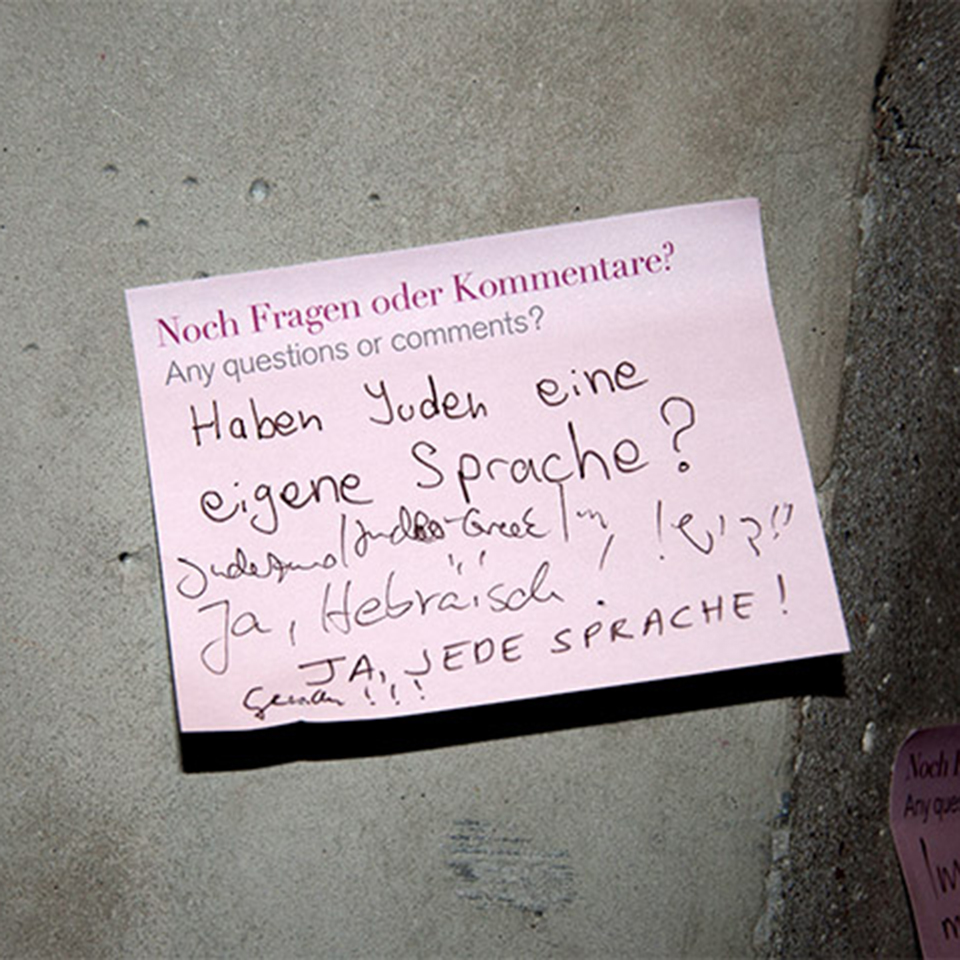 Noch Fragen oder Kommentare?
Any questions or comments?
Haben Juden eine
eigene Sprache?
Judeo-Greek
Ja, Hebräisch.
JA, JEDE SPRACHE!
Genau!!!
Noch
Any que